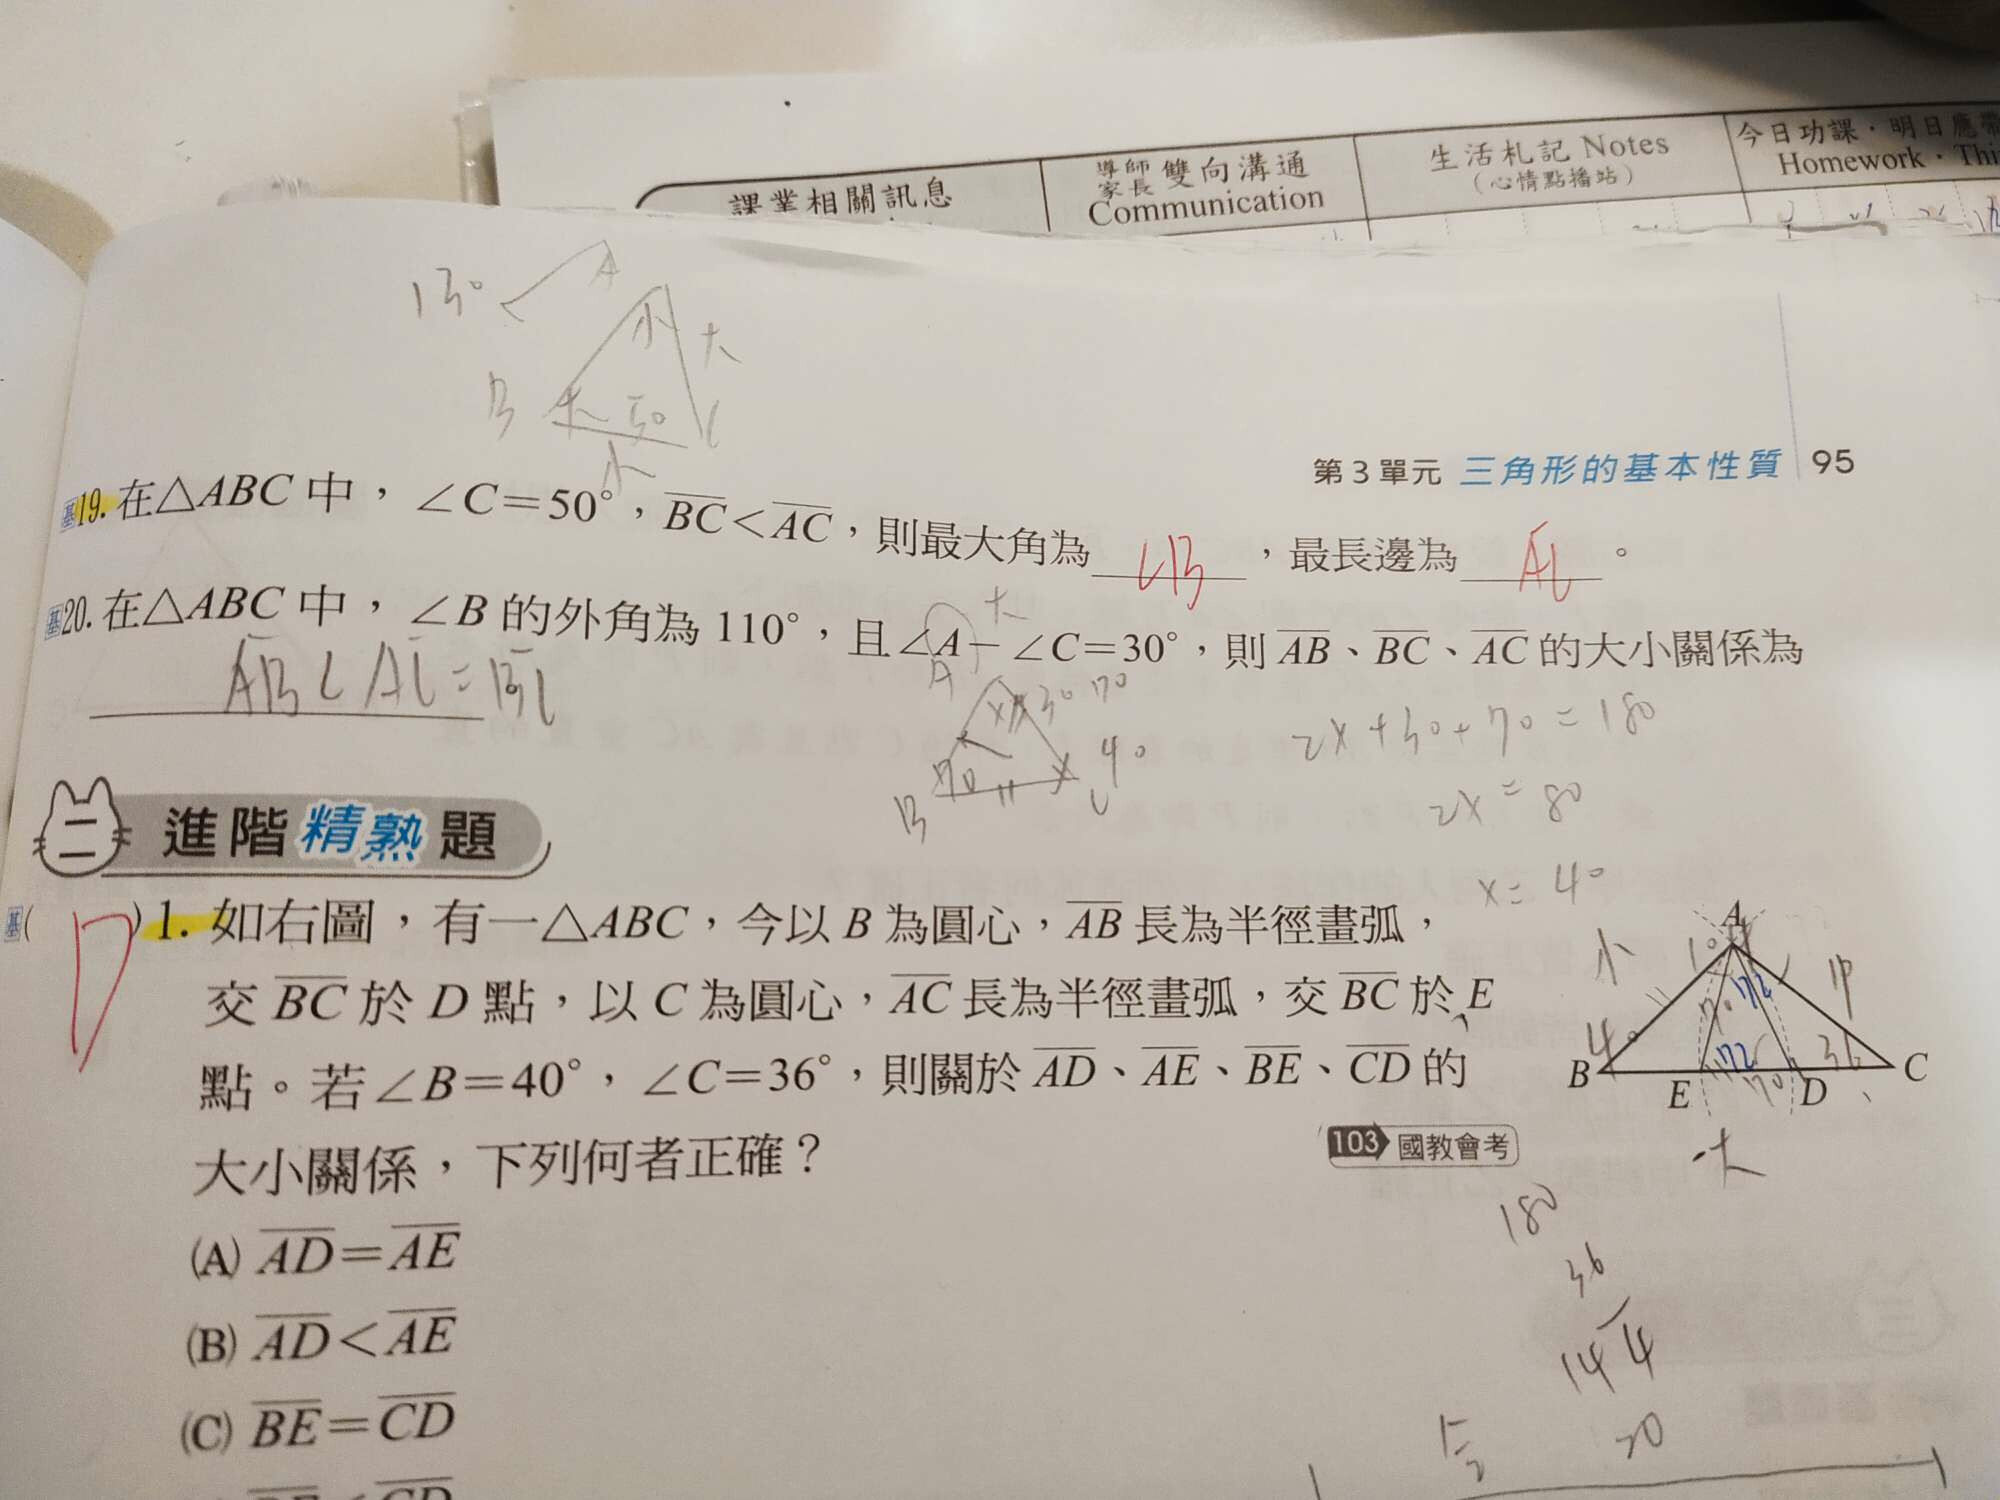 課業相關訊息
導師 家長 雙向溝通
Communication
生活札記 Notes
(心情點播站)
今日功課・明日應帶
Homework・Thi
130°
A
小
大
B
大 50
C
小
第3單元 三角形的基本性質 95
基19. 在△ABC中，∠C=50°，BC<AC，則最大角為 ∠B ，最長邊為 AC 。
基20. 在△ABC中，∠B的外角為110°，且∠A−∠C=30°，則AB、BC、AC的大小關係為
AB<AC=BC
大
A
x+30 70
70
x 40
B
C
2x+30+70=180
2x=80
x=40
二 進階精熟題
基( D )1. 如右圖，有一△ABC，今以B為圓心，AB長為半徑畫弧，
交BC於D點，以C為圓心，AC長為半徑畫弧，交BC於E
點。若∠B=40°，∠C=36°，則關於AD、AE、BE、CD的
大小關係，下列何者正確？
103 國教會考
(A) AD=AE
(B) AD<AE
(C) BE=CD
BE<CD
A
小
中
70
72
40
72
70
36
B
E
D
C
大
180
36
144